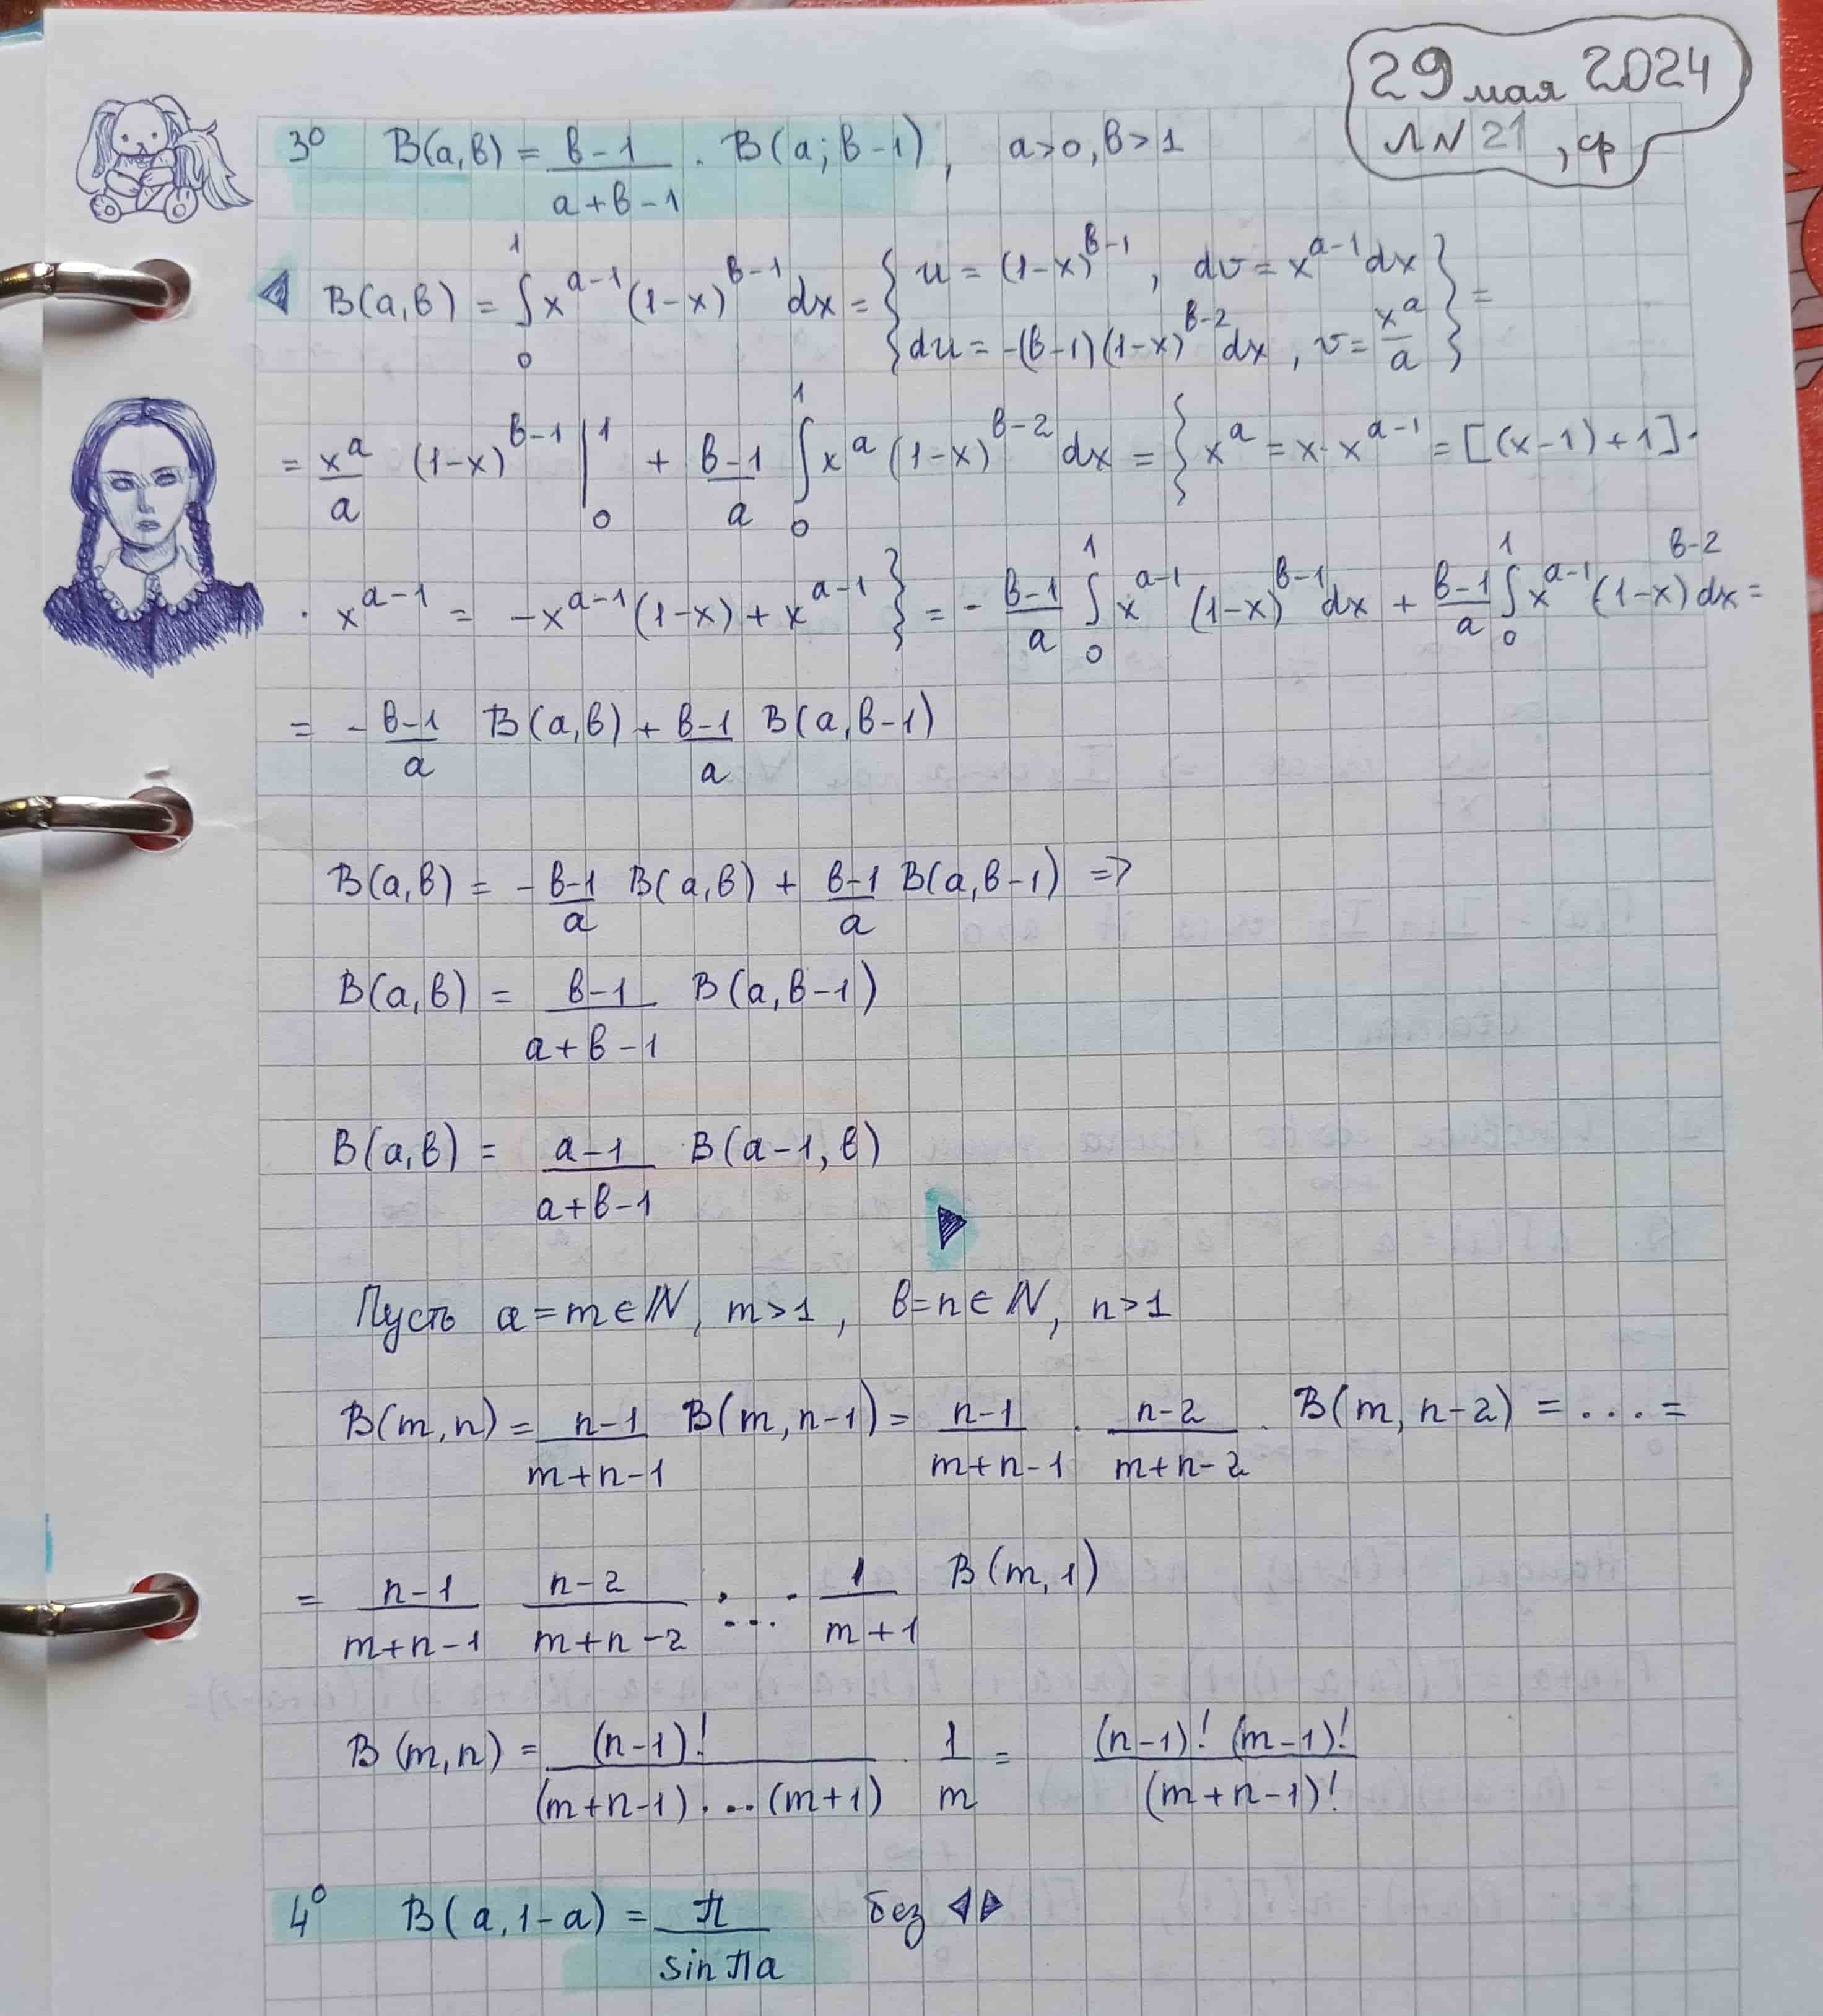 29 мая 2024
Л N 21, ср
3° B(a,b) = \frac{b-1}{a+b-1} · B(a; b-1), a>0, b>1
◁ B(a,b) = \int_0^1 x^{a-1} (1-x)^{b-1} dx = { u = (1-x)^{b-1}, dv = x^{a-1} dx
du = -(b-1)(1-x)^{b-2} dx, v = \frac{x^a}{a} } =
= \frac{x^a}{a} (1-x)^{b-1} |_0^1 + \frac{b-1}{a} \int_0^1 x^a (1-x)^{b-2} dx = { x^a = x · x^{a-1} = [(x-1)+1] ·
· x^{a-1} = -x^{a-1}(1-x) + x^{a-1} } = - \frac{b-1}{a} \int_0^1 x^{a-1} (1-x)^{b-1} dx + \frac{b-1}{a} \int_0^1 x^{a-1} (1-x)^{b-2} dx =
= - \frac{b-1}{a} B(a,b) + \frac{b-1}{a} B(a,b-1)
B(a,b) = - \frac{b-1}{a} B(a,b) + \frac{b-1}{a} B(a,b-1) =>
B(a,b) = \frac{b-1}{a+b-1} B(a,b-1)
B(a,b) = \frac{a-1}{a+b-1} B(a-1,b)
▷
Пусть a=m∈ℕ, m>1, b=n∈ℕ, n>1
B(m,n) = \frac{n-1}{m+n-1} B(m,n-1) = \frac{n-1}{m+n-1} · \frac{n-2}{m+n-2} · B(m,n-2) = ... =
= \frac{n-1}{m+n-1} \frac{n-2}{m+n-2} · ... · \frac{1}{m+1} B(m,1)
B(m,n) = \frac{(n-1)!}{(m+n-1)·...(m+1)} · \frac{1}{m} = \frac{(n-1)! (m-1)!}{(m+n-1)!}
4° B(a,1-a) = \frac{π}{sin πa} без ◁▷